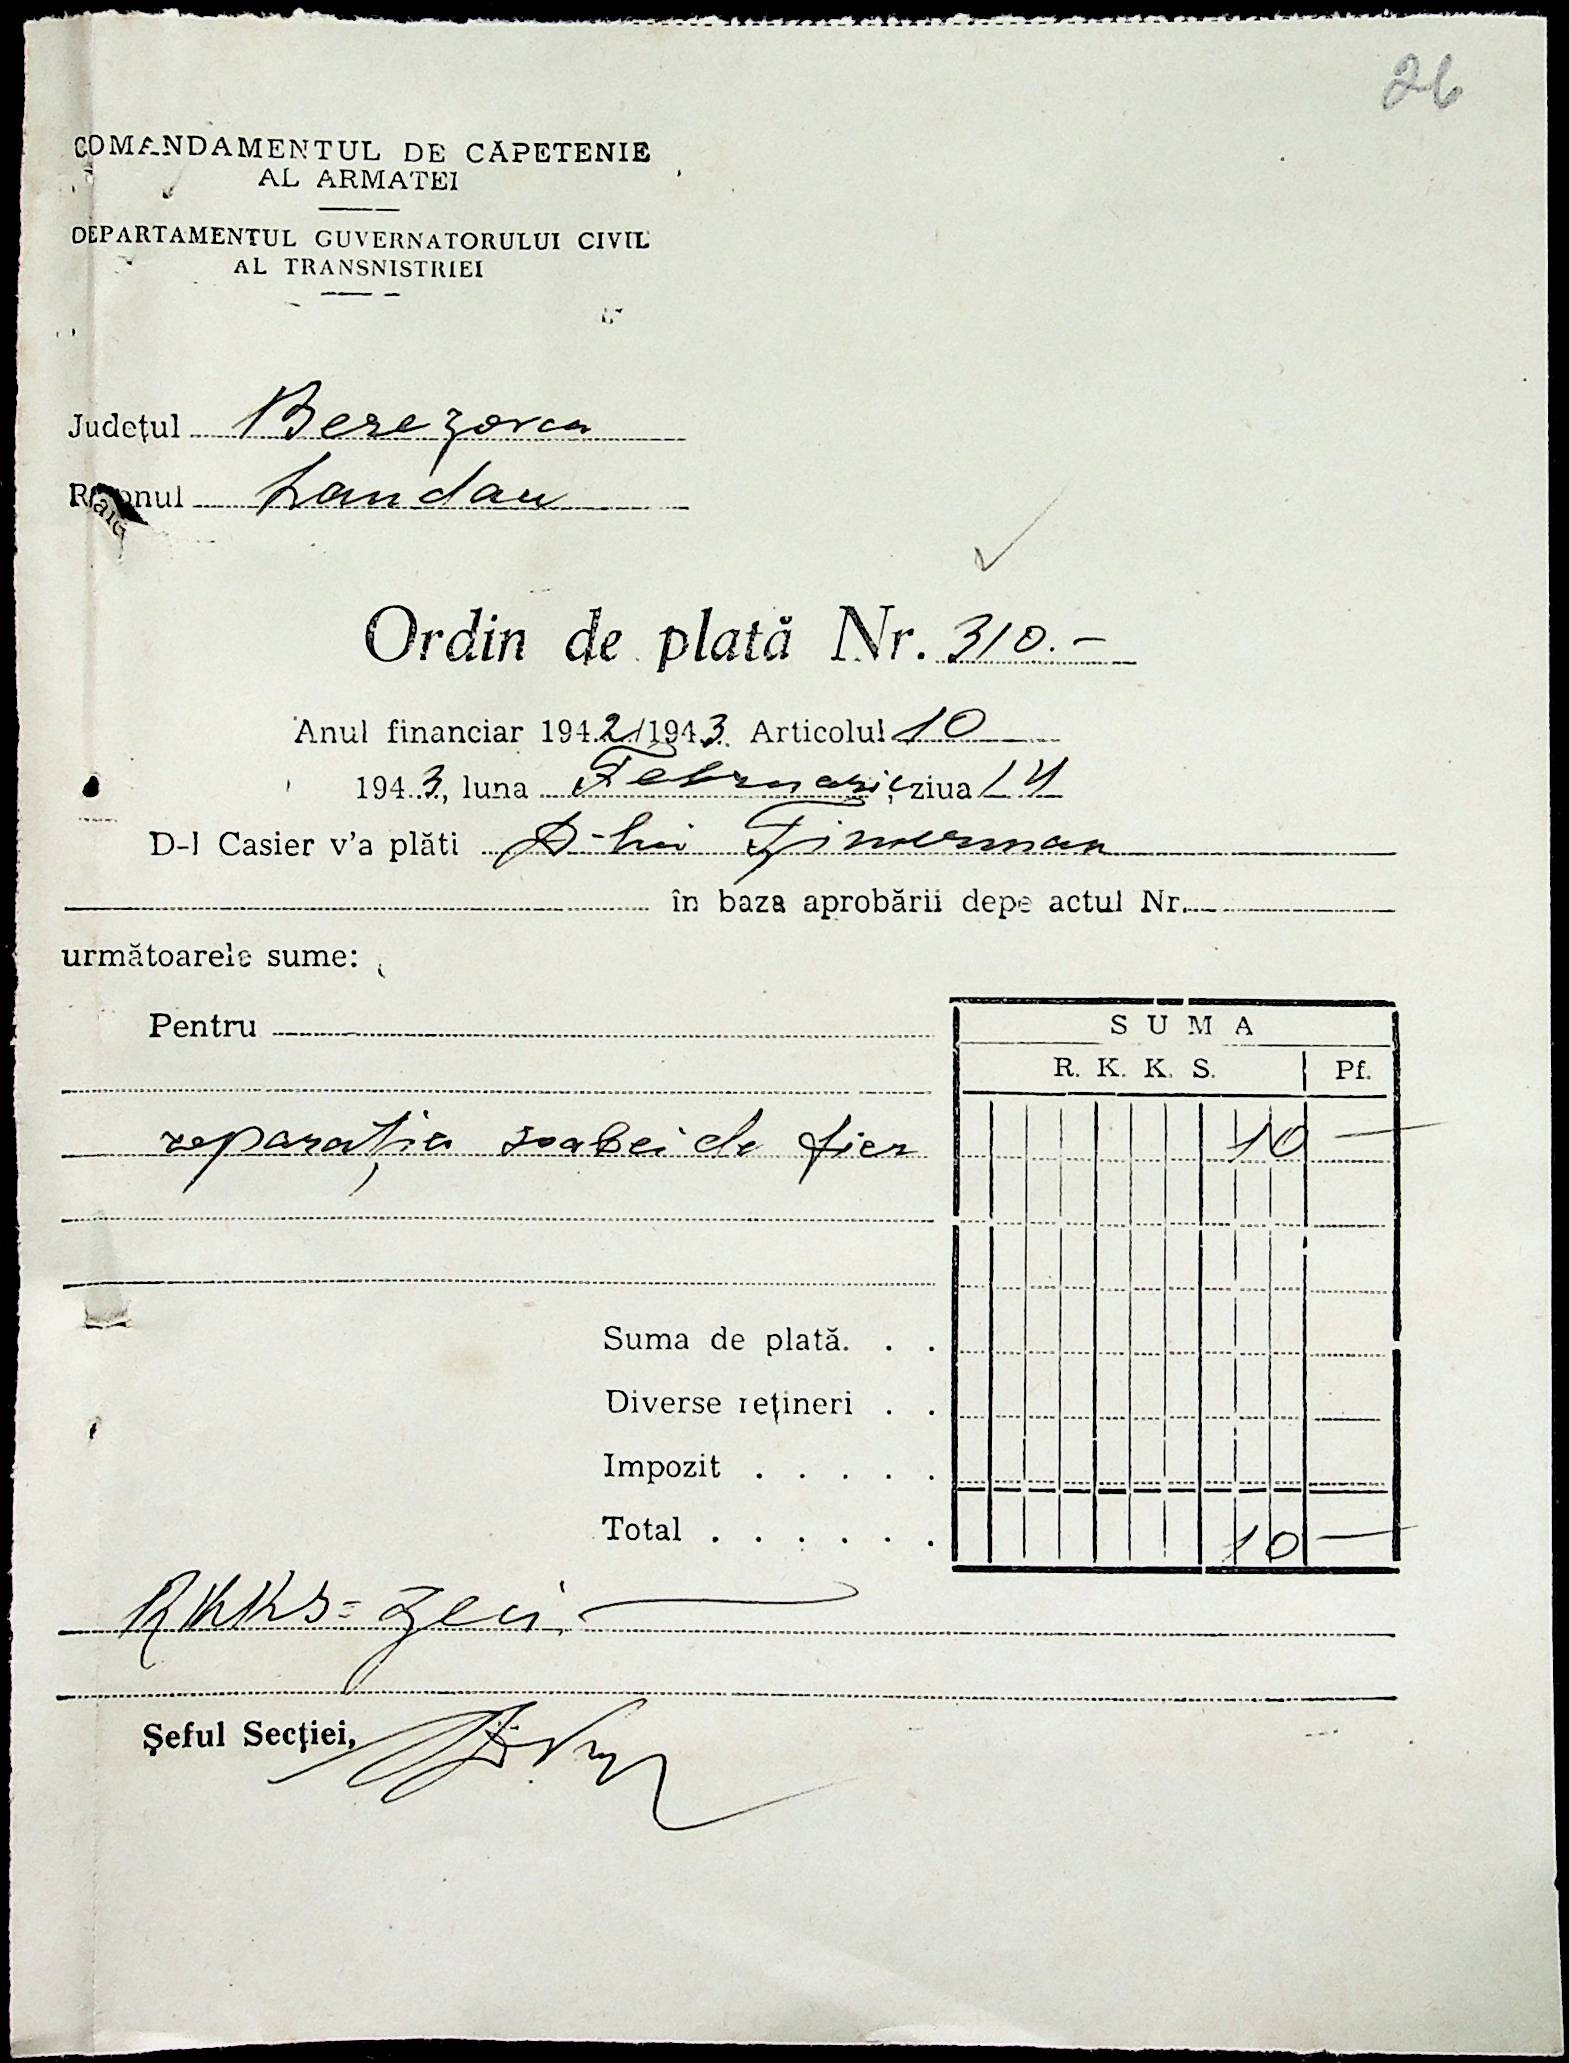 26
COMANDAMENTUL DE CĂPETENIE
AL ARMATEI
DEPARTAMENTUL GUVERNATORULUI CIVIL
AL TRANSNISTRIEI
Județul Berezovca
Raionul Landau
Ordin de plată Nr. 310.-
Anul financiar 1942/1943 Articolul 10
1943, luna Februarie, ziua 14
D-l Casier v'a plăti D-lui Timerman
în baza aprobării depe actul Nr.
următoarele sume:
Pentru
SUMA
R. K. K. S. Pf.
reparația soabei de fier 10 —
Suma de plată. . .
Diverse rețineri . .
Impozit . . . . .
Total . . . . . . 10 —
RKKS = zeci
Șeful Secției,